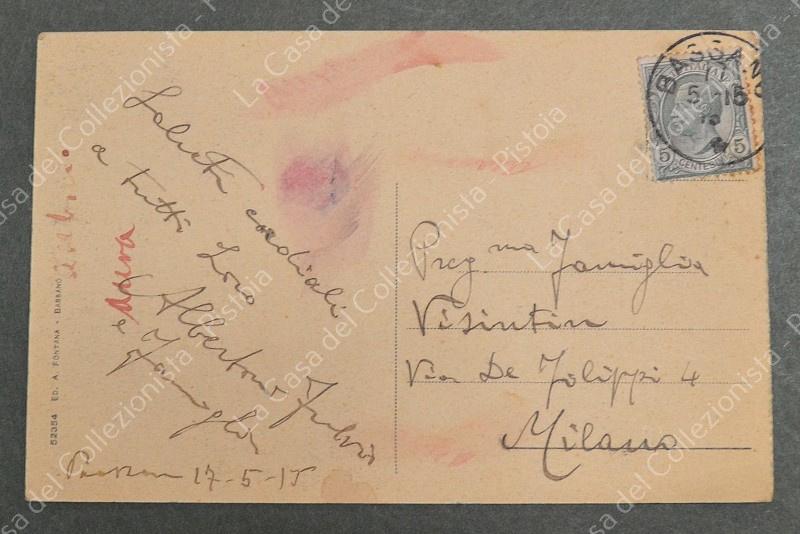 Saluti cordiali
a tutti Loro
Albertoni Fulvio
e Famiglia
17-5-15
Preg.ma Famiglia
Visintin
Via De Filippi 4
Milano
BASSANO
5 - 15
5 CENTES. 5
52354 ED. A. FONTANA - BASSANO
La Casa del Collezionista - Pistoia